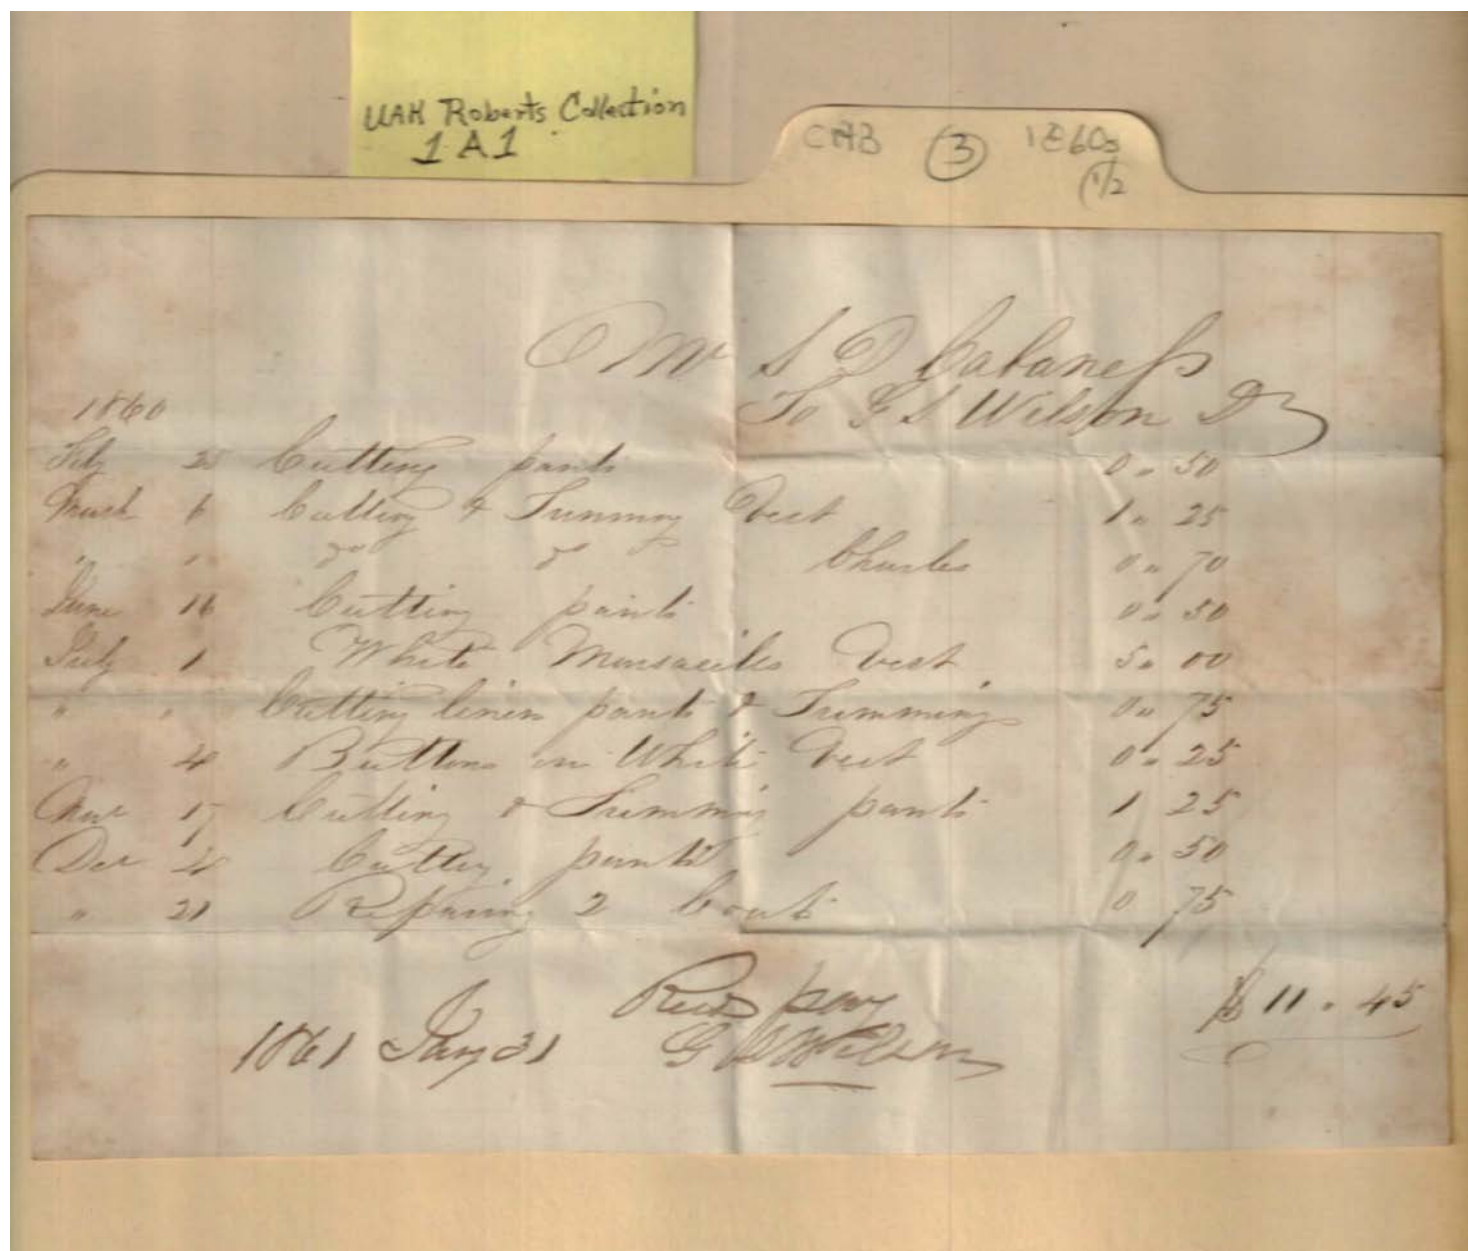 UAH Roberts Collection
1A1
CAB 3 1860s
(1/2
Mr S D Cabaness
To G S Wilson Dr
1860
Feb Cutting pants 0 " 50
March 6 Cutting & Trimming Vest 1 " 25
" " do do Charles 0 " 70
June 16 Cutting pants 0 " 50
July 1 White Marsailes Vest 5 " 00
" " Cutting linen pants & Trimming 0 " 75
" 4 Buttons on White Vest 0 " 25
Nov 17 Cutting & Trimming pants 1 25
Dec 4 Cutting pants 0 " 50
" 21 Repairing 2 Coats 0 75
$ 11 . 45
Recd pay
1861 Jany 31 G S Wilson